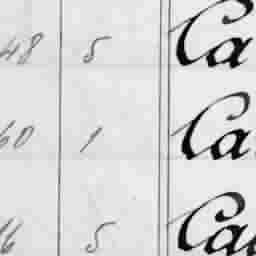 48 5 Ca
60 1 Ca
16 5 Ca